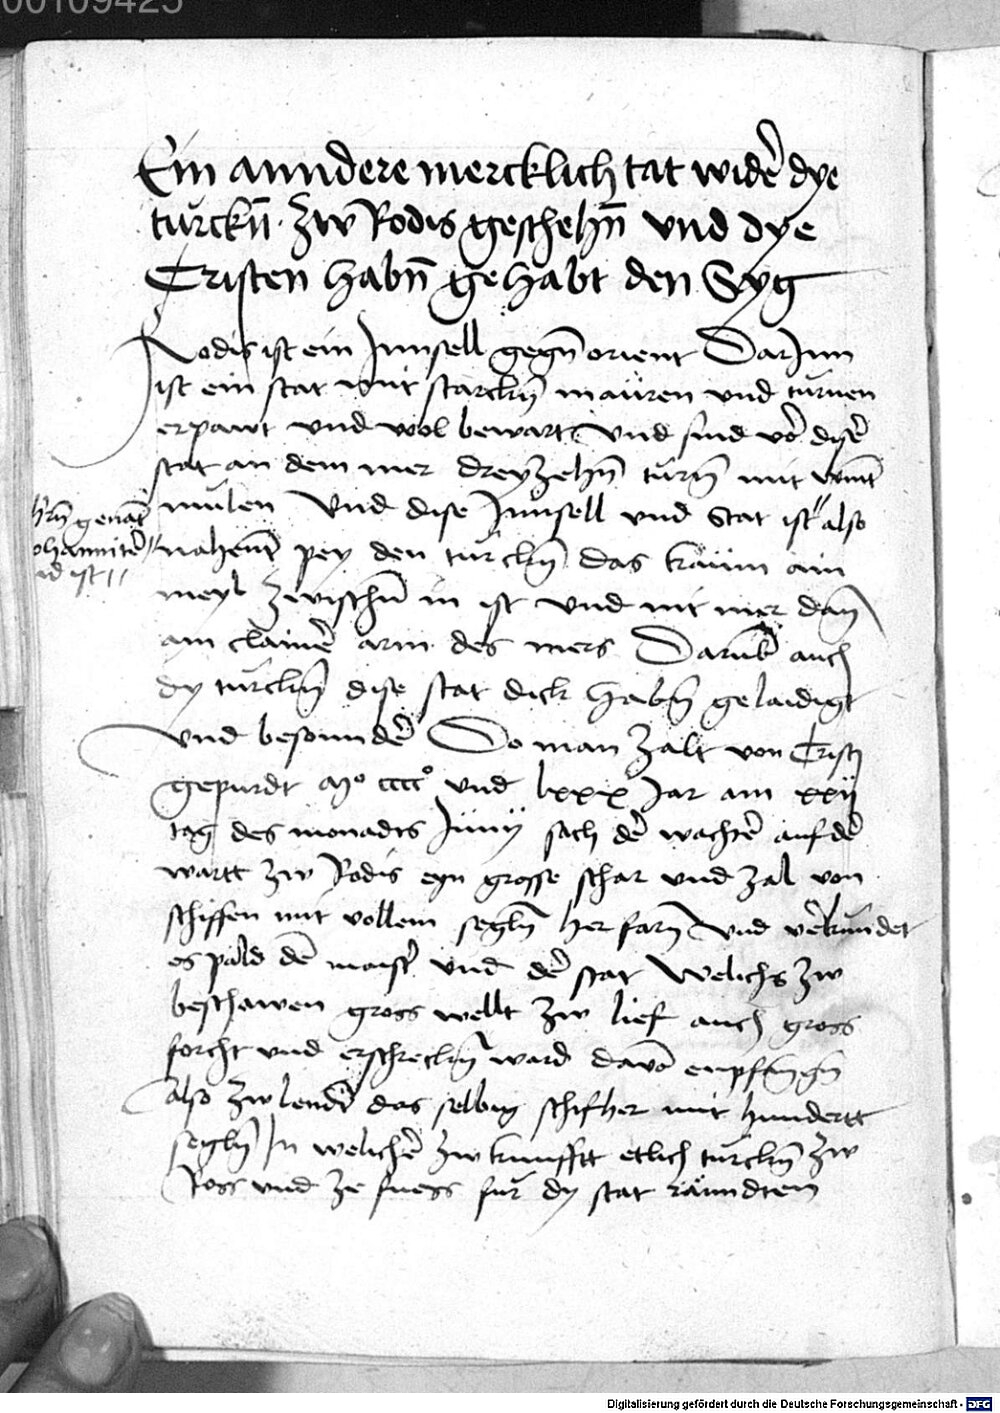 00109425
Ein anndere mercklich tat widẽ dye
turckn̄ zw Rodis geschehn̄ und dye
Cristen habn̄ gehabt den Syg
Rodis ist ein Innsell gegn̄ orient Dar Inn
ist ein stat mit starckn̄ mauren und turnen
erpawt und wol bewart und sind vō disẽ
stat an dem mer dreyzehn̄ turn̄ mit wint
mulen Und dise Innsell und Stat ist also
hrn̄ genāt
ohannitẽ
nahent pey den turckn̄ das kaum ain
id ist
meyl zwischn̄ in ist und nit mer dan̄
ain clainẽ arm des mers Darūb auch
dy turckn̄ dise stat dick habn̄ gelaidigt
und besonndẽ Do man zalt von Cristi
gepurdt mº ccccº und lxxx Jar am xxij
tag des monadts Junÿ sach dẽ wachtẽ auf dẽ
wartt zw Rodis eyn grosse schar und zal von
schiffen mit vollem segln̄ her farn̄ Und vẽkundet
es pald dē maist̃ und dẽ stat Welichs zw
beschawen gross wellt zw lief auch gross
forcht und erschreckn̄ ward davō enpfangn̄
Also zw lendt das selbig schifher mit hundertt
segln̄ In welichẽ zw kunfftt etlich turckn̄ zw
Ross und ze fuess fur dy stat ranndten
Digitalisierung gefördert durch die Deutsche Forschungsgemeinschaft - DFG